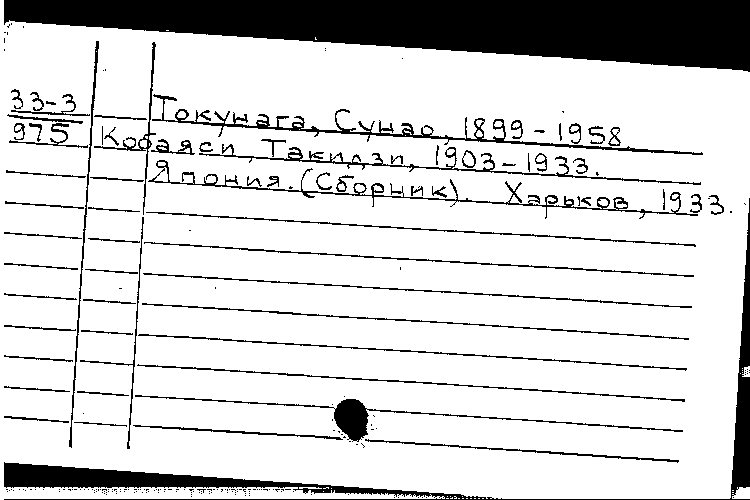 33-3
975
Токунага, Сунао, 1899-1958.
Кобаяси, Такидзи, 1903-1933.
Япония. (Сборник). Харьков, 1933.